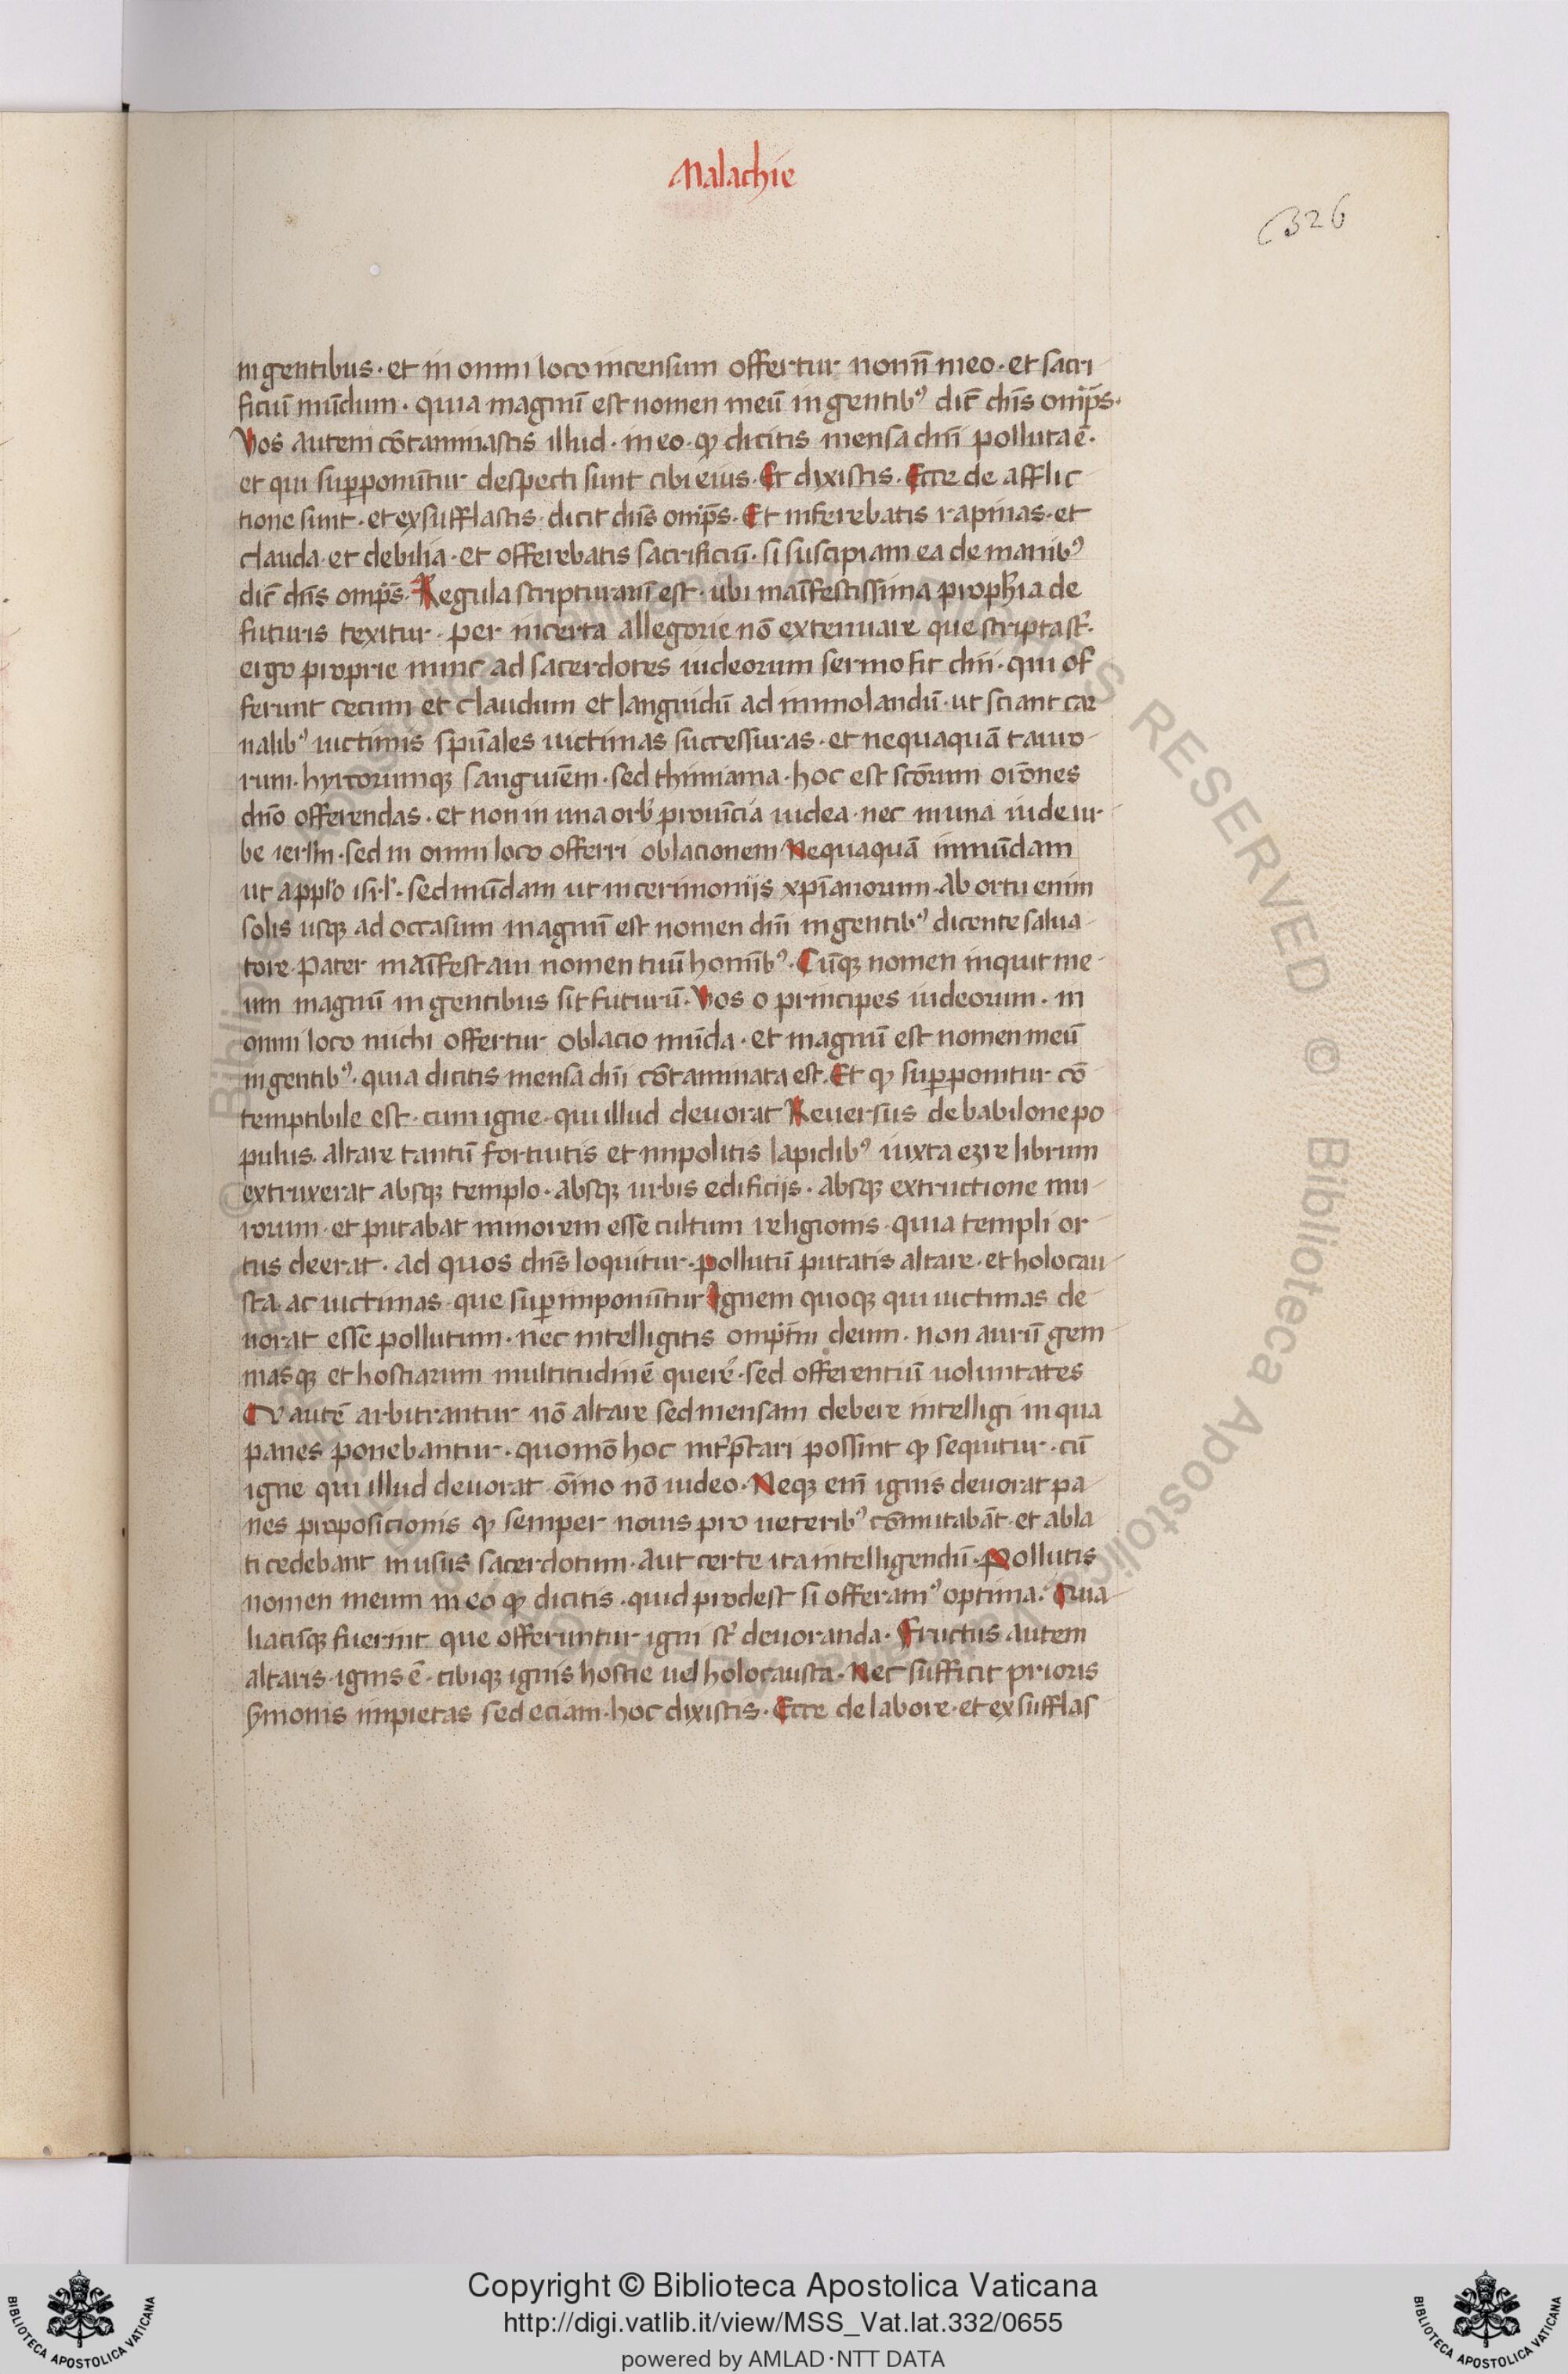 Malachie
326
in gentibus · et in omni loco incensum offertur nomī meo · et sacri
ficiū mūdum · quia magnū est nomen meū in gentibꝰ dic̄ dn̄s omp̄s ·
Vos autem cōtaminastis illud · in eo · ꝙ dicitis mensa dn̄i polluta ē ·
et qui suꝑponūtur despecti sunt cibi eius · Et dixistis · Ecce de afflic
tione sunt · et exsufflastis · dicit dn̄s omp̄s · Et inferebatis rapinas · et
clauda · et debilia · et offerebatis sacrificiū · si suscipiam ea de manibꝰ
dic̄ dn̄s omp̄s · Regula scripturarū est · ubi maīfestissima proph̄ia de
futuris texitur · per incerta allegorie nō extenuare que scripta sͭ ·
ergo proprie nunc ad sacerdotes iudeorum sermo fit dn̄i · qui of
ferunt cecum et claudum et languidū ad immolandū · ut sciant car
nalibꝰ uictimis sp̄uales uictimas successuras · et nequaquā tauro
rum · hyrcorumqꝫ sanguiēm · sed thimiama · hoc est sc̄orum or̄ones
dn̄o offerendas · et non in una orbꝰ prouīcia iudea · nec in una iude ur
be ierlm̄ · sed in omni loco offerri oblacionem Nequaquā inmūdam
ut a pplo isrl̓ · sed mūdam ut in cerimoniis xp̄ianorum · Ab ortu enim
solis usqꝫ ad occasum magnū est nomen dn̄i in gentibꝰ dicente salua
tore · Pater maīfestaui nomen tuū homībꝰ · Cūqꝫ nomen inquit me
um magnū in gentibus sit futurū · Vos o principes iudeorum · in
omni loco michi offertur oblacio mūda · et magnū est nomen meū
in gentibꝰ · quia dicitis mensa dn̄i cōtaminata est · Et ꝙ suꝑponitur cō
temptibile est · cum igne · qui illud deuorat Reuersus de babilone po
pulus · altare tantū fortuitis et impolitis lapidibꝰ iuxta ezre librum
extruxerat absqꝫ templo · absqꝫ urbis edificiis · absqꝫ extructione mu
rorum · et putabat minorem esse cultum religionis · quia templi or
tus deerat · ad quos dn̄s loquitur · pollutū putatis altare · et holocau
sta · ac uictimas · que suꝑimponūtur Ignem quoqꝫ qui uictimas de
uorat esse pollutum · nec intelligitis omp̄tm̄ deum · non aurū gem
masqꝫ et hostiarum multitudinē querer̓ · sed offerentiū uoluntates
Qͥ autē arbitrantur nō altare sed mensam debere intelligi in qua
panes ponebantur · quomō hoc int̓p̄tari possint ꝙ sequitur · cū
igne qui illud deuorat · ōino nō uideo · Neqꝫ enī ignis deuorat pa
nes proposicionis ꝙ semper nouis pro ueteribꝰ cōmutabāt · et abla
ti cedebant in usus sacerdotum · aut certe ita intelligendū · Polluitis
nomen meum in eo ꝙ dicitis · quid prodest si offeramꝰ optima · Qua
liacūqꝫ fuerint que offeruntur igni sͭ deuoranda · Fructus autem
altaris · ignis ē · cibiqꝫ ignis hostie uel holocausta · Nec sufficit prioris
s̓monis impietas sed eciam · hoc dixistis · Ecce de labore · et exsufflas
Copyright © Biblioteca Apostolica Vaticana
http://digi.vatlib.it/view/MSS_Vat.lat.332/0655
powered by AMLAD·NTT DATA